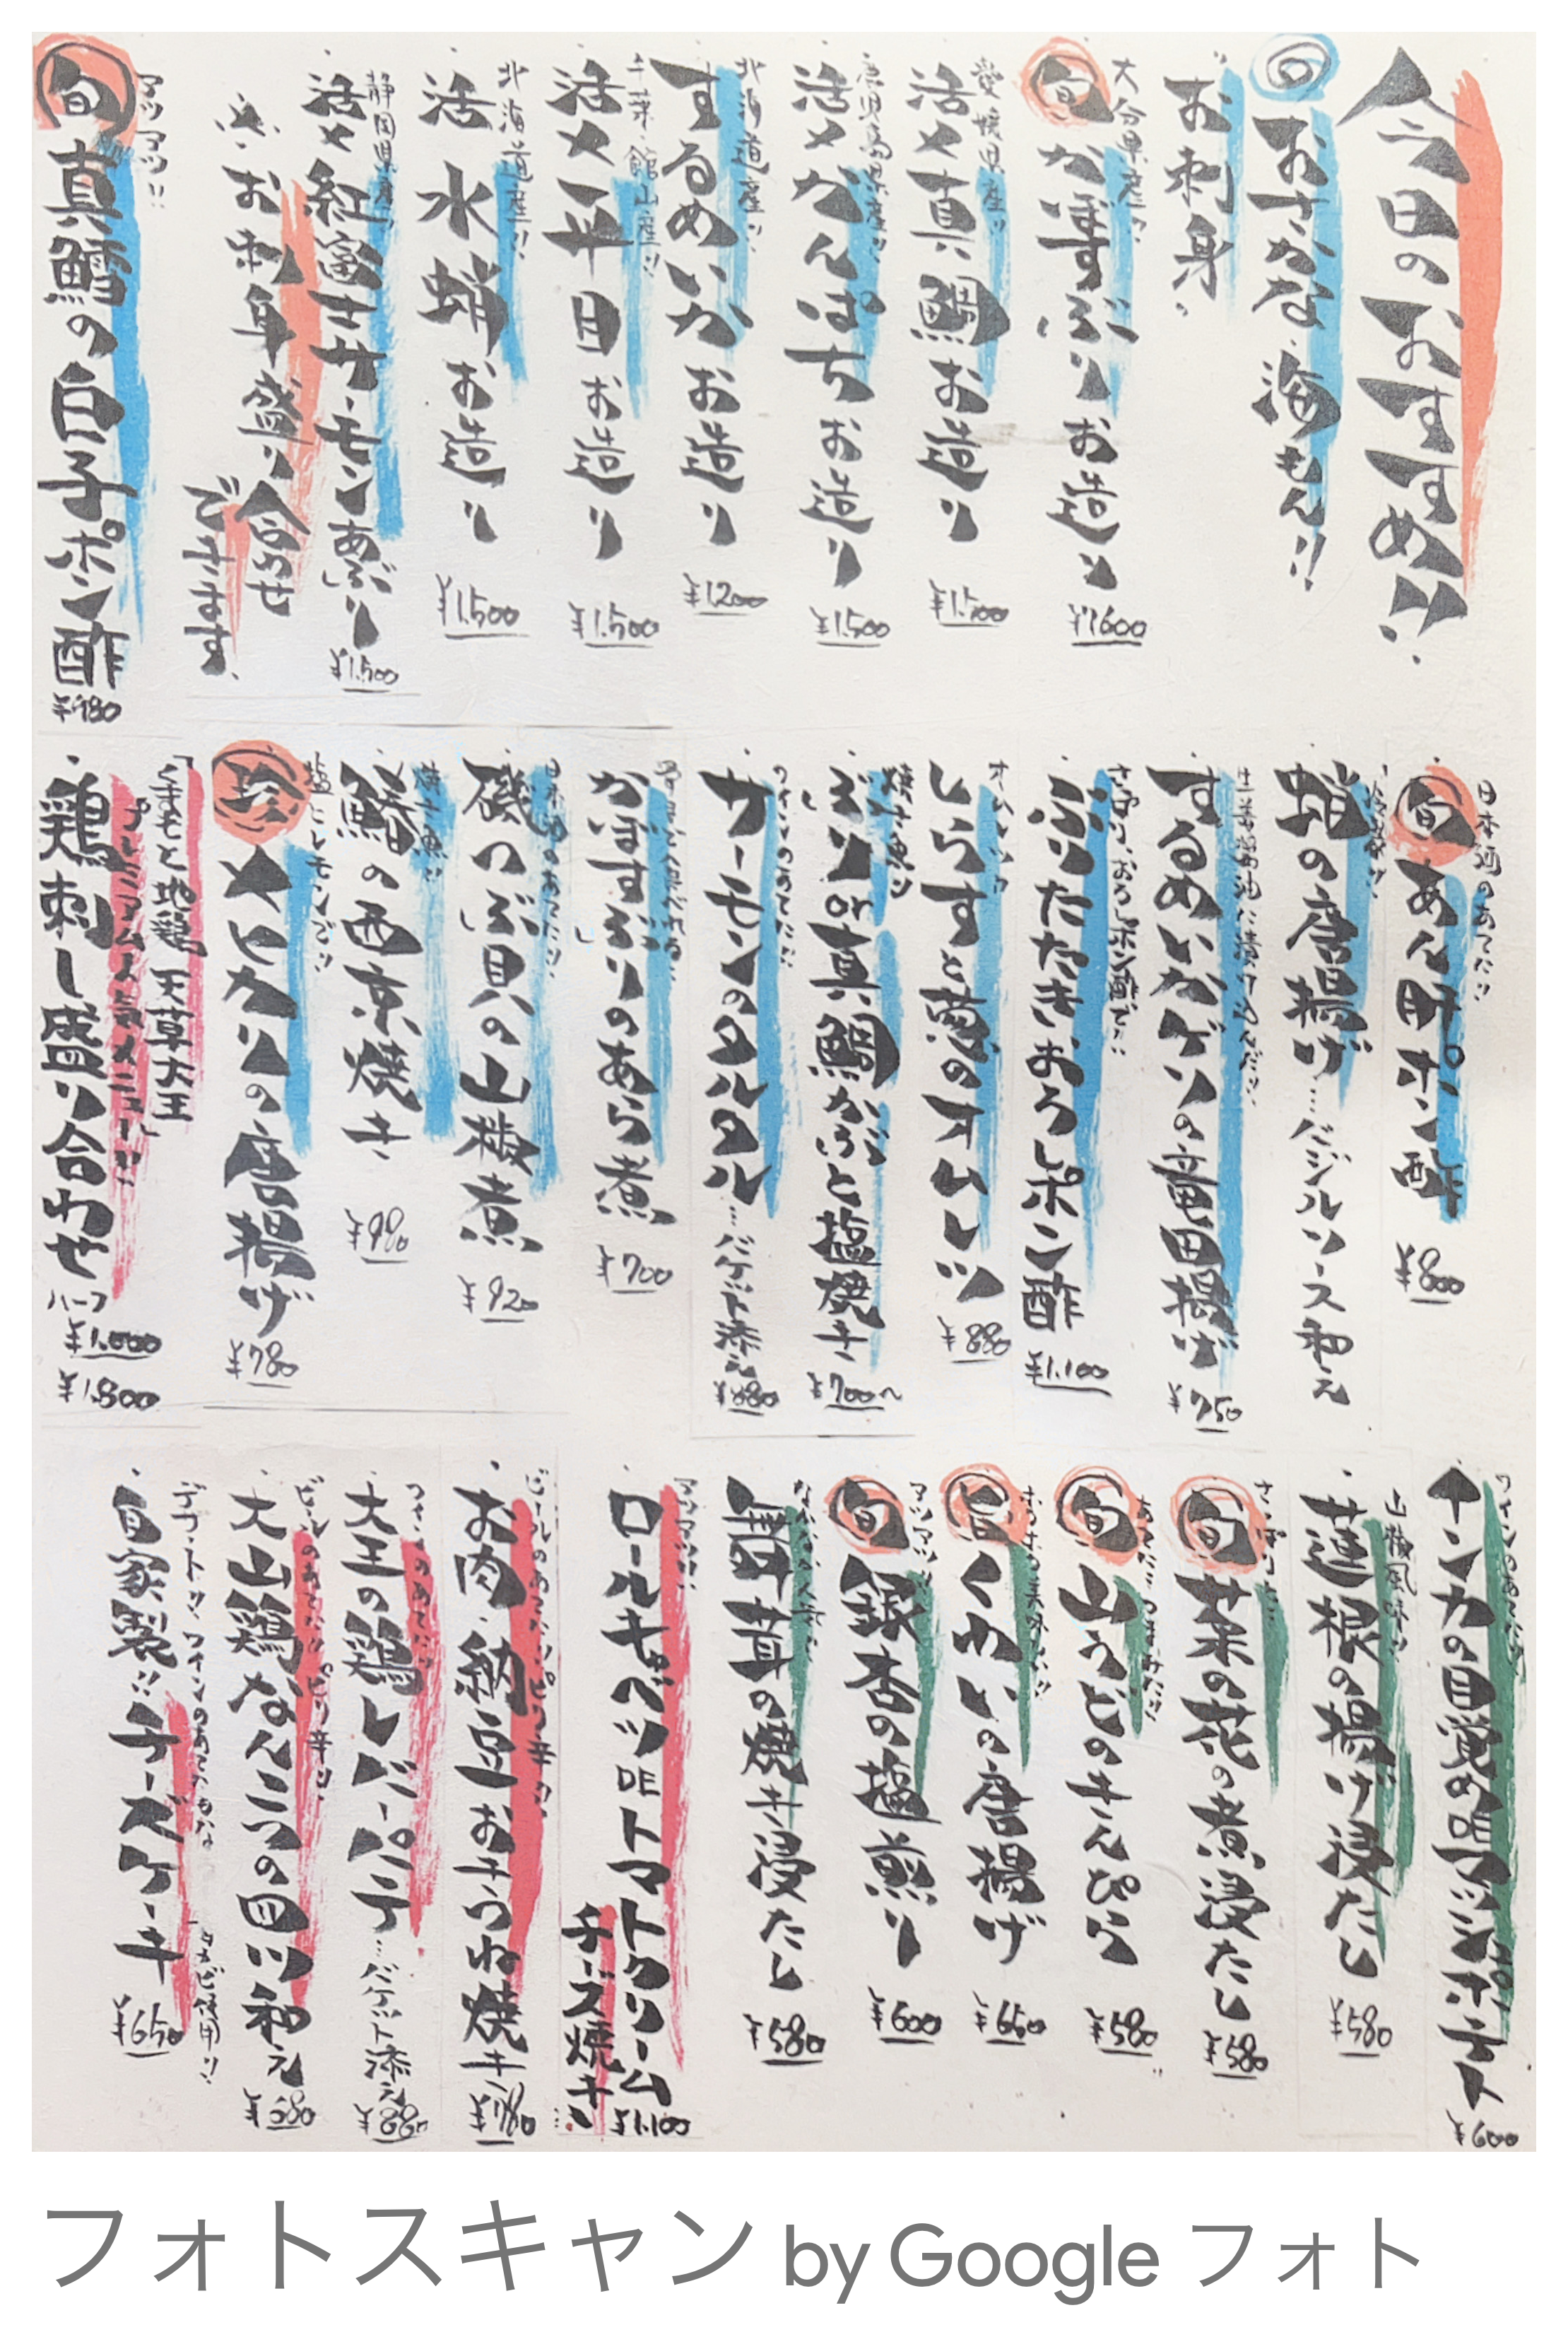 今日のおすすめ!!
旬 おさかな、海もん!!
お刺身
大分県産!!
旬 かぼすぶりお造り
¥1600
愛媛県産!!
活〆真鯛お造り
¥1.500
鹿児島県産!!
活〆かんぱちお造り
¥1.500
北海道産!!
するめいかお造り
¥1200
千葉・館山産!!
活〆平目お造り
¥1.500
北海道産!!
活水蛸お造り
¥1.500
静岡県産!!
活〆紅富士サーモンあぶり
¥1.500
お刺身盛り合わせ
できます
アツアツ!!
旬 真鱈の白子ポン酢
¥980
日本酒のあてに!!
旬 あん肝ポン酢
¥800
蛸の唐揚げ…バジルソース和え
生姜醤油に漬けこんだ!!
するめいかゲソの竜田揚げ
¥750
ぶりたたきおろしポン酢
¥1.100
しらすと葱のオムレツ
¥880
焼き魚!!
ぶりor真鯛かぶと塩焼き
¥700〜
ワインのあてに!!
サーモンのタルタル…バケット添え
¥880
かぼすぶりのあら煮
¥700
日本酒のあてに!!
磯つぶ貝の山椒煮
¥920
焼き魚!!
鰆の西京焼き
¥980
塩とレモンで!!
珍 メヒカリの唐揚げ
¥780
「くまもと地鶏 天草大王
プレミアム人気メニュー!!」
鶏刺し盛り合わせ
ハーフ ¥1.000
¥1.800
インカの目覚めアンチョビポテト
¥600
山椒風味!!
蓮根の揚げ浸たし
¥580
旬 菜の花の煮浸たし
¥580
旬 山うどのきんぴら
¥580
旬 くわいの唐揚げ
¥650
アツアツ!!
旬 銀杏の塩煎り
¥600
舞茸の焼き浸たし
¥580
アツアツ!!
ロールキャベツDEトマトクリーム
チーズ焼き
¥1.100
ビールのあてに!!ピリ辛!!
お肉・納豆おきつね焼き
¥780
ワインのあてに!!
大王の鶏レバーパテ…バケット添え
¥880
ビールのあてに!!ピリ辛!!
大山鶏なんこつの四川和え
¥580
デザート!!ワインのあてにもな
自家製!!チーズケーキ
¥650
フォトスキャン by Google フォト